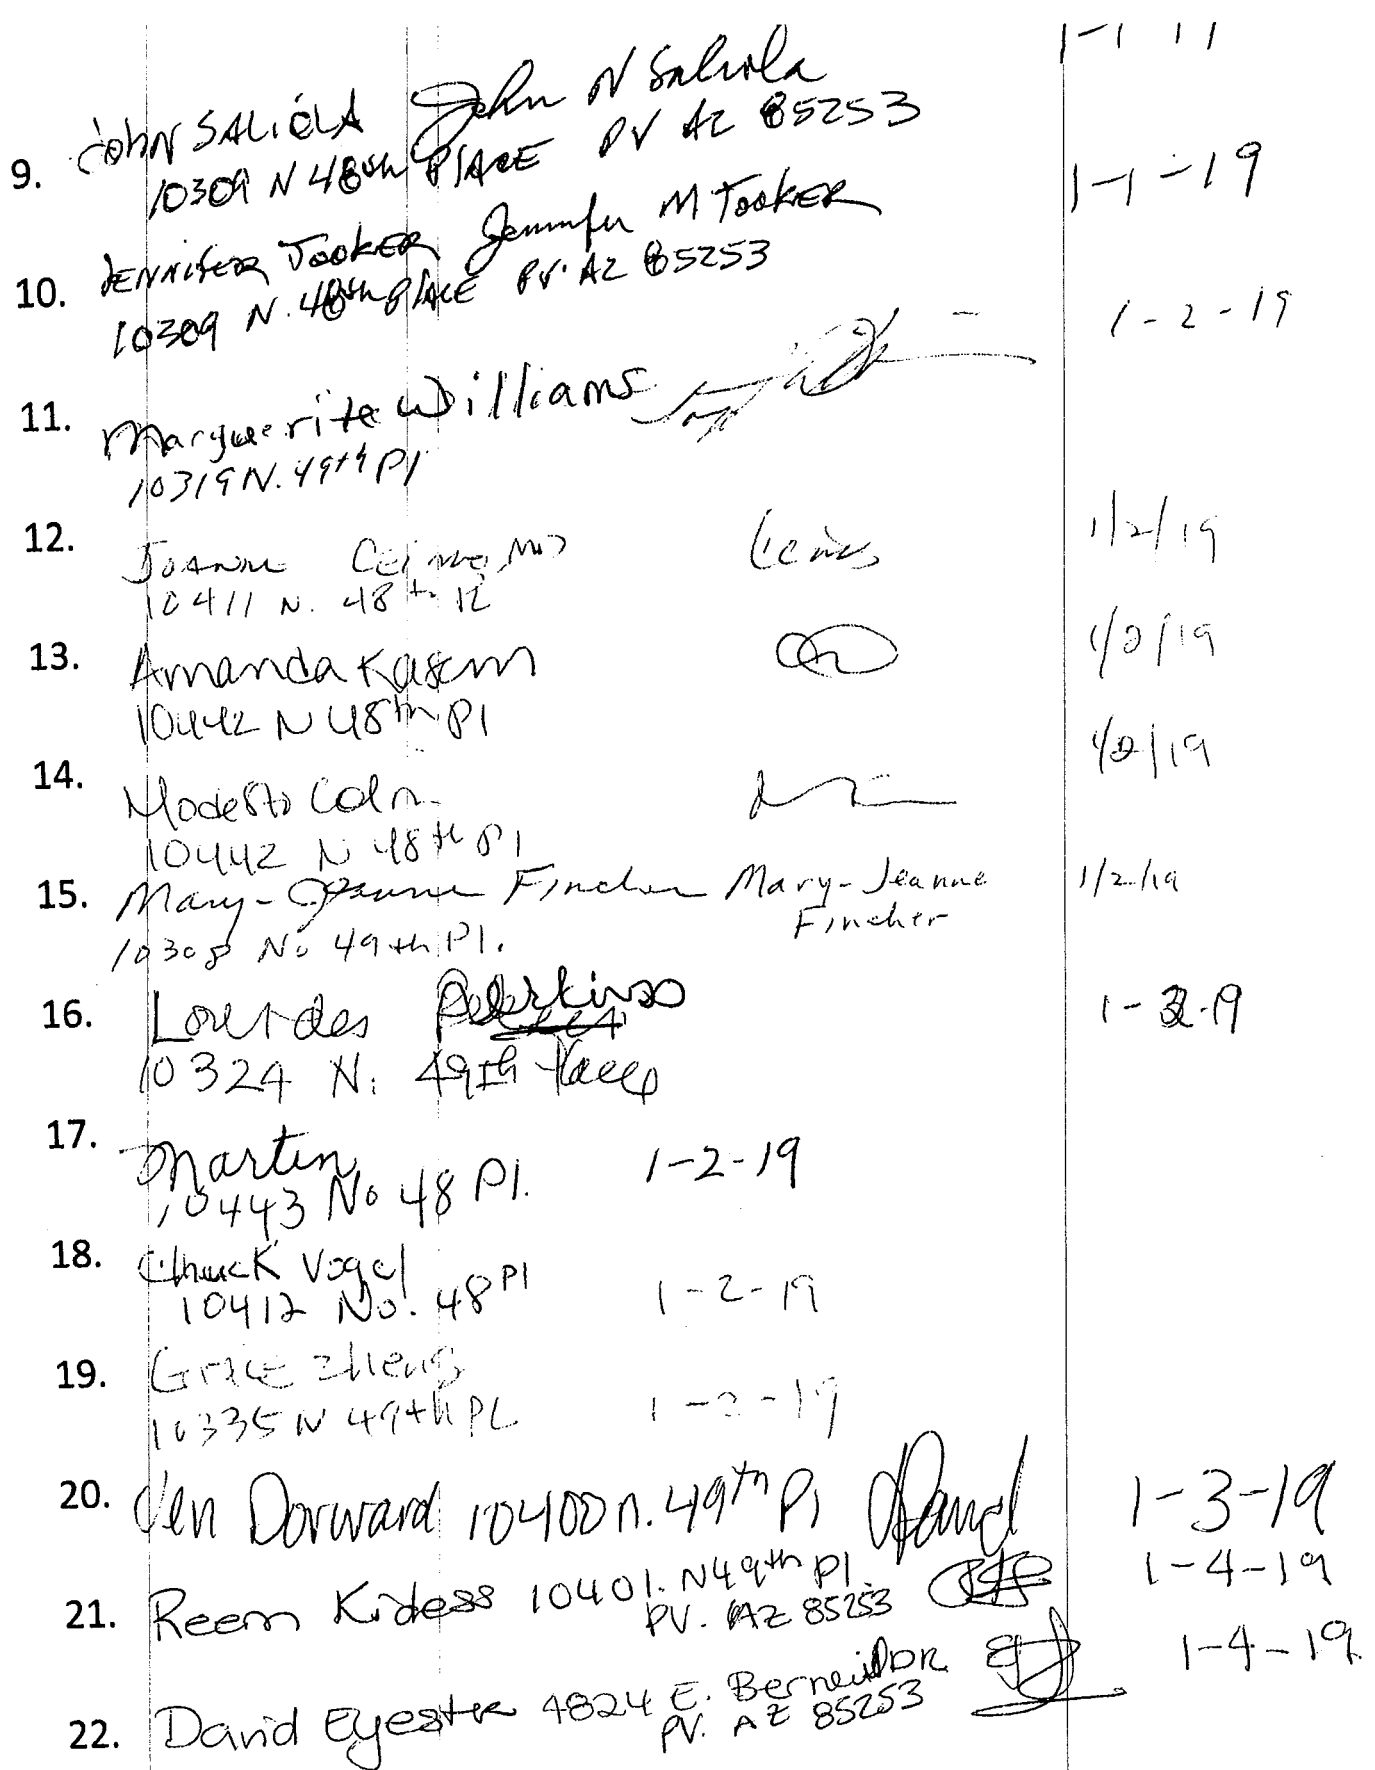 1-1 11
9. JOHN SALIOLA John N Saliola
10309 N 48th PLACE PV AZ 85253
1-1-19
10. JENNIFER TOOKER Jennifer M TOOKER
10309 N. 48th PLACE P.V. AZ 85253
1-2-19
11. Marguerite Williams
10319 N. 49th Pl
12. JOANNE MD 1/2/19
10411 N. 48th Pl
13. Amanda Kasem 1/2/19
10442 N 48th Pl
14. Modesto Colon 1/2/19
10442 N 48th Pl
15. Mary-Jeanne Fincher Mary-Jeanne 1/2/19
Fincher
10308 No 49th Pl.
16. Lourdes 1-2-19
10324 N. 49th Place
17. Martin 1-2-19
10443 No 48 Pl.
18. Chuck Vogel
10412 No. 48 Pl 1-2-19
19. Grace Zheng
10335 N 49th PL 1-2-19
20. Jen Dorward 10400 n. 49th Pl 1-3-19
21. Reem Kidess 10401. N 49th Pl. 1-4-19
PV. AZ 85253
22. David Eyester 4824 E. Berneil DR. 1-4-19.
PV. AZ 85253